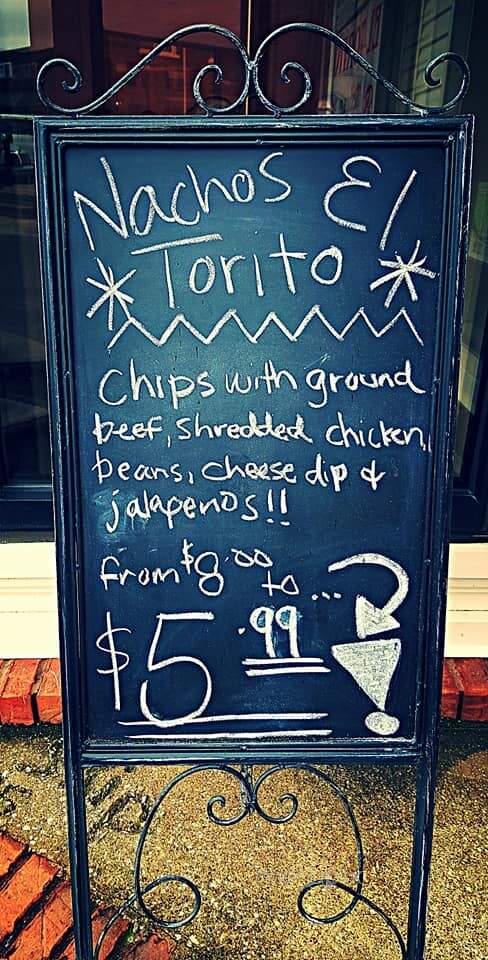 Nachos El
* Torito *
Chips with ground
beef, shredded chicken,
beans, cheese dip &
jalapenos!!
from $8.00
to ...
$5.99 !